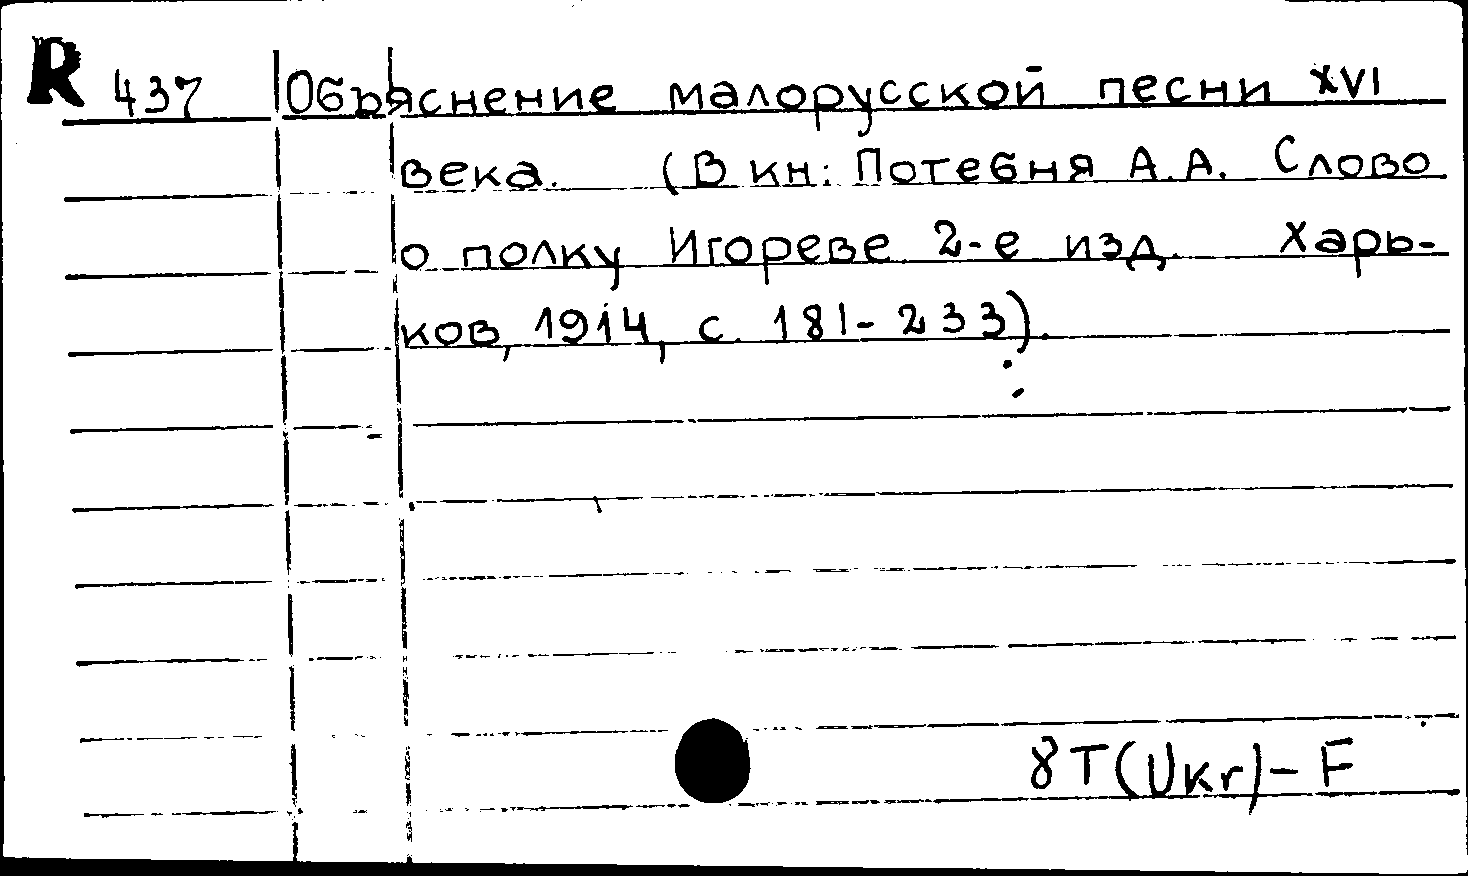 R 437 Обьяснение малорусской песни XVI
века. (В кн: Потебня А.А. Слово
о полку Игореве 2-е изд. Харь-
ков, 1914, с. 181-233).
8T(Ukr)-F